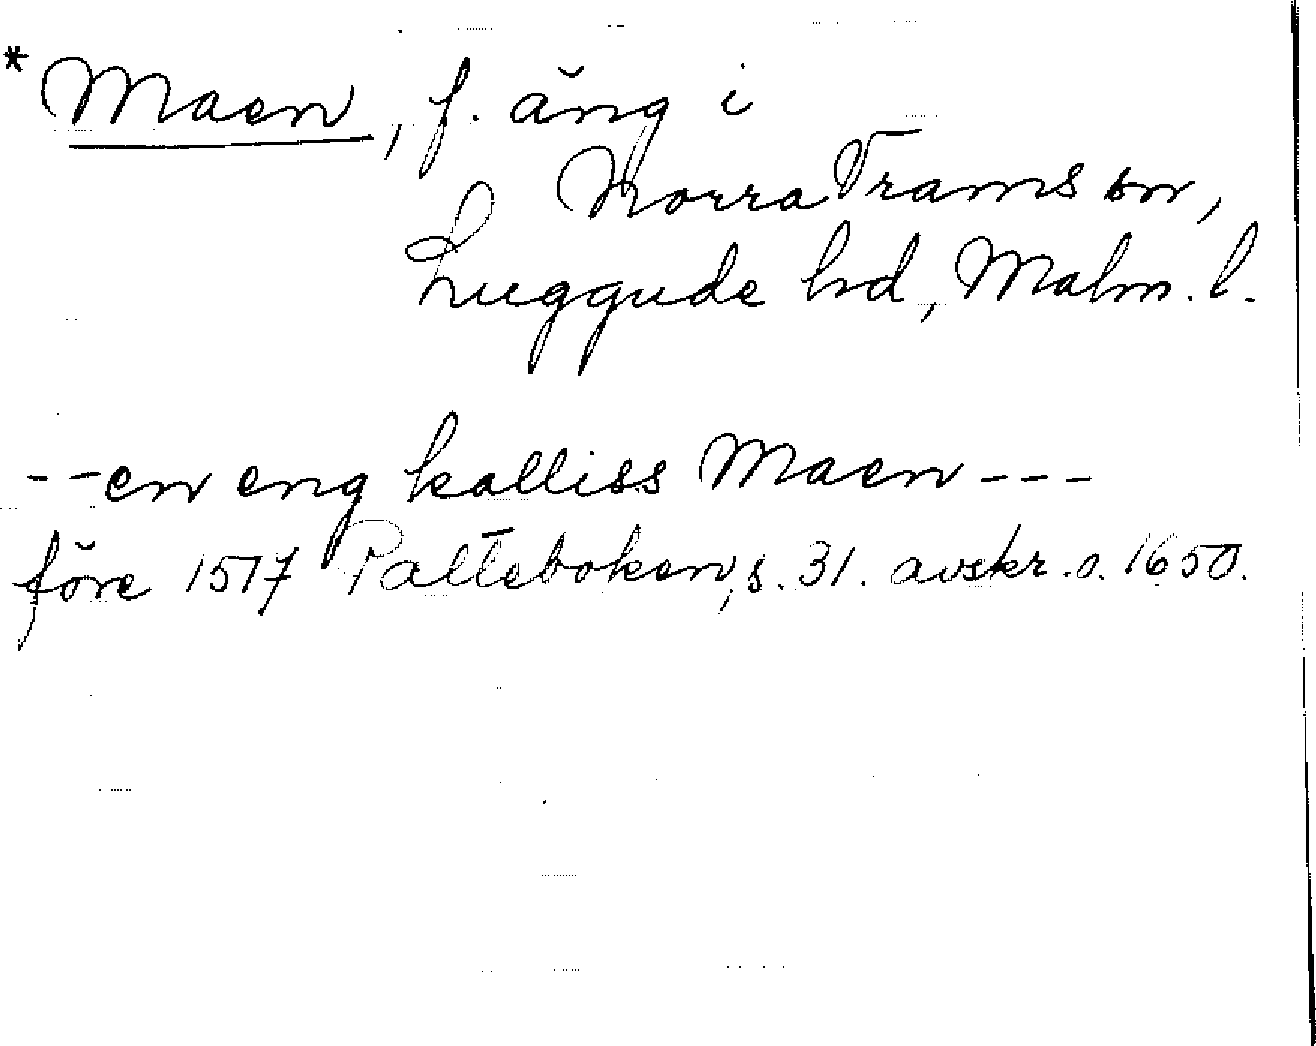 *Maen, f. äng i
Norra Vrams sn,
Luggude hd, Malm. l.
--en eng kalliss Maen---
före 1517 Palteboken, s. 31. avskr. o. 1650.